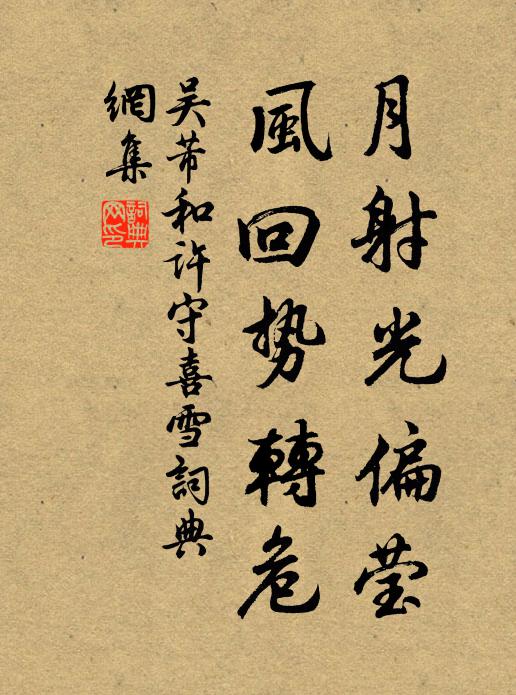 月射光偏莹
風回势轉危
吴芾和许守喜雪詞典
網集
詞典
網印